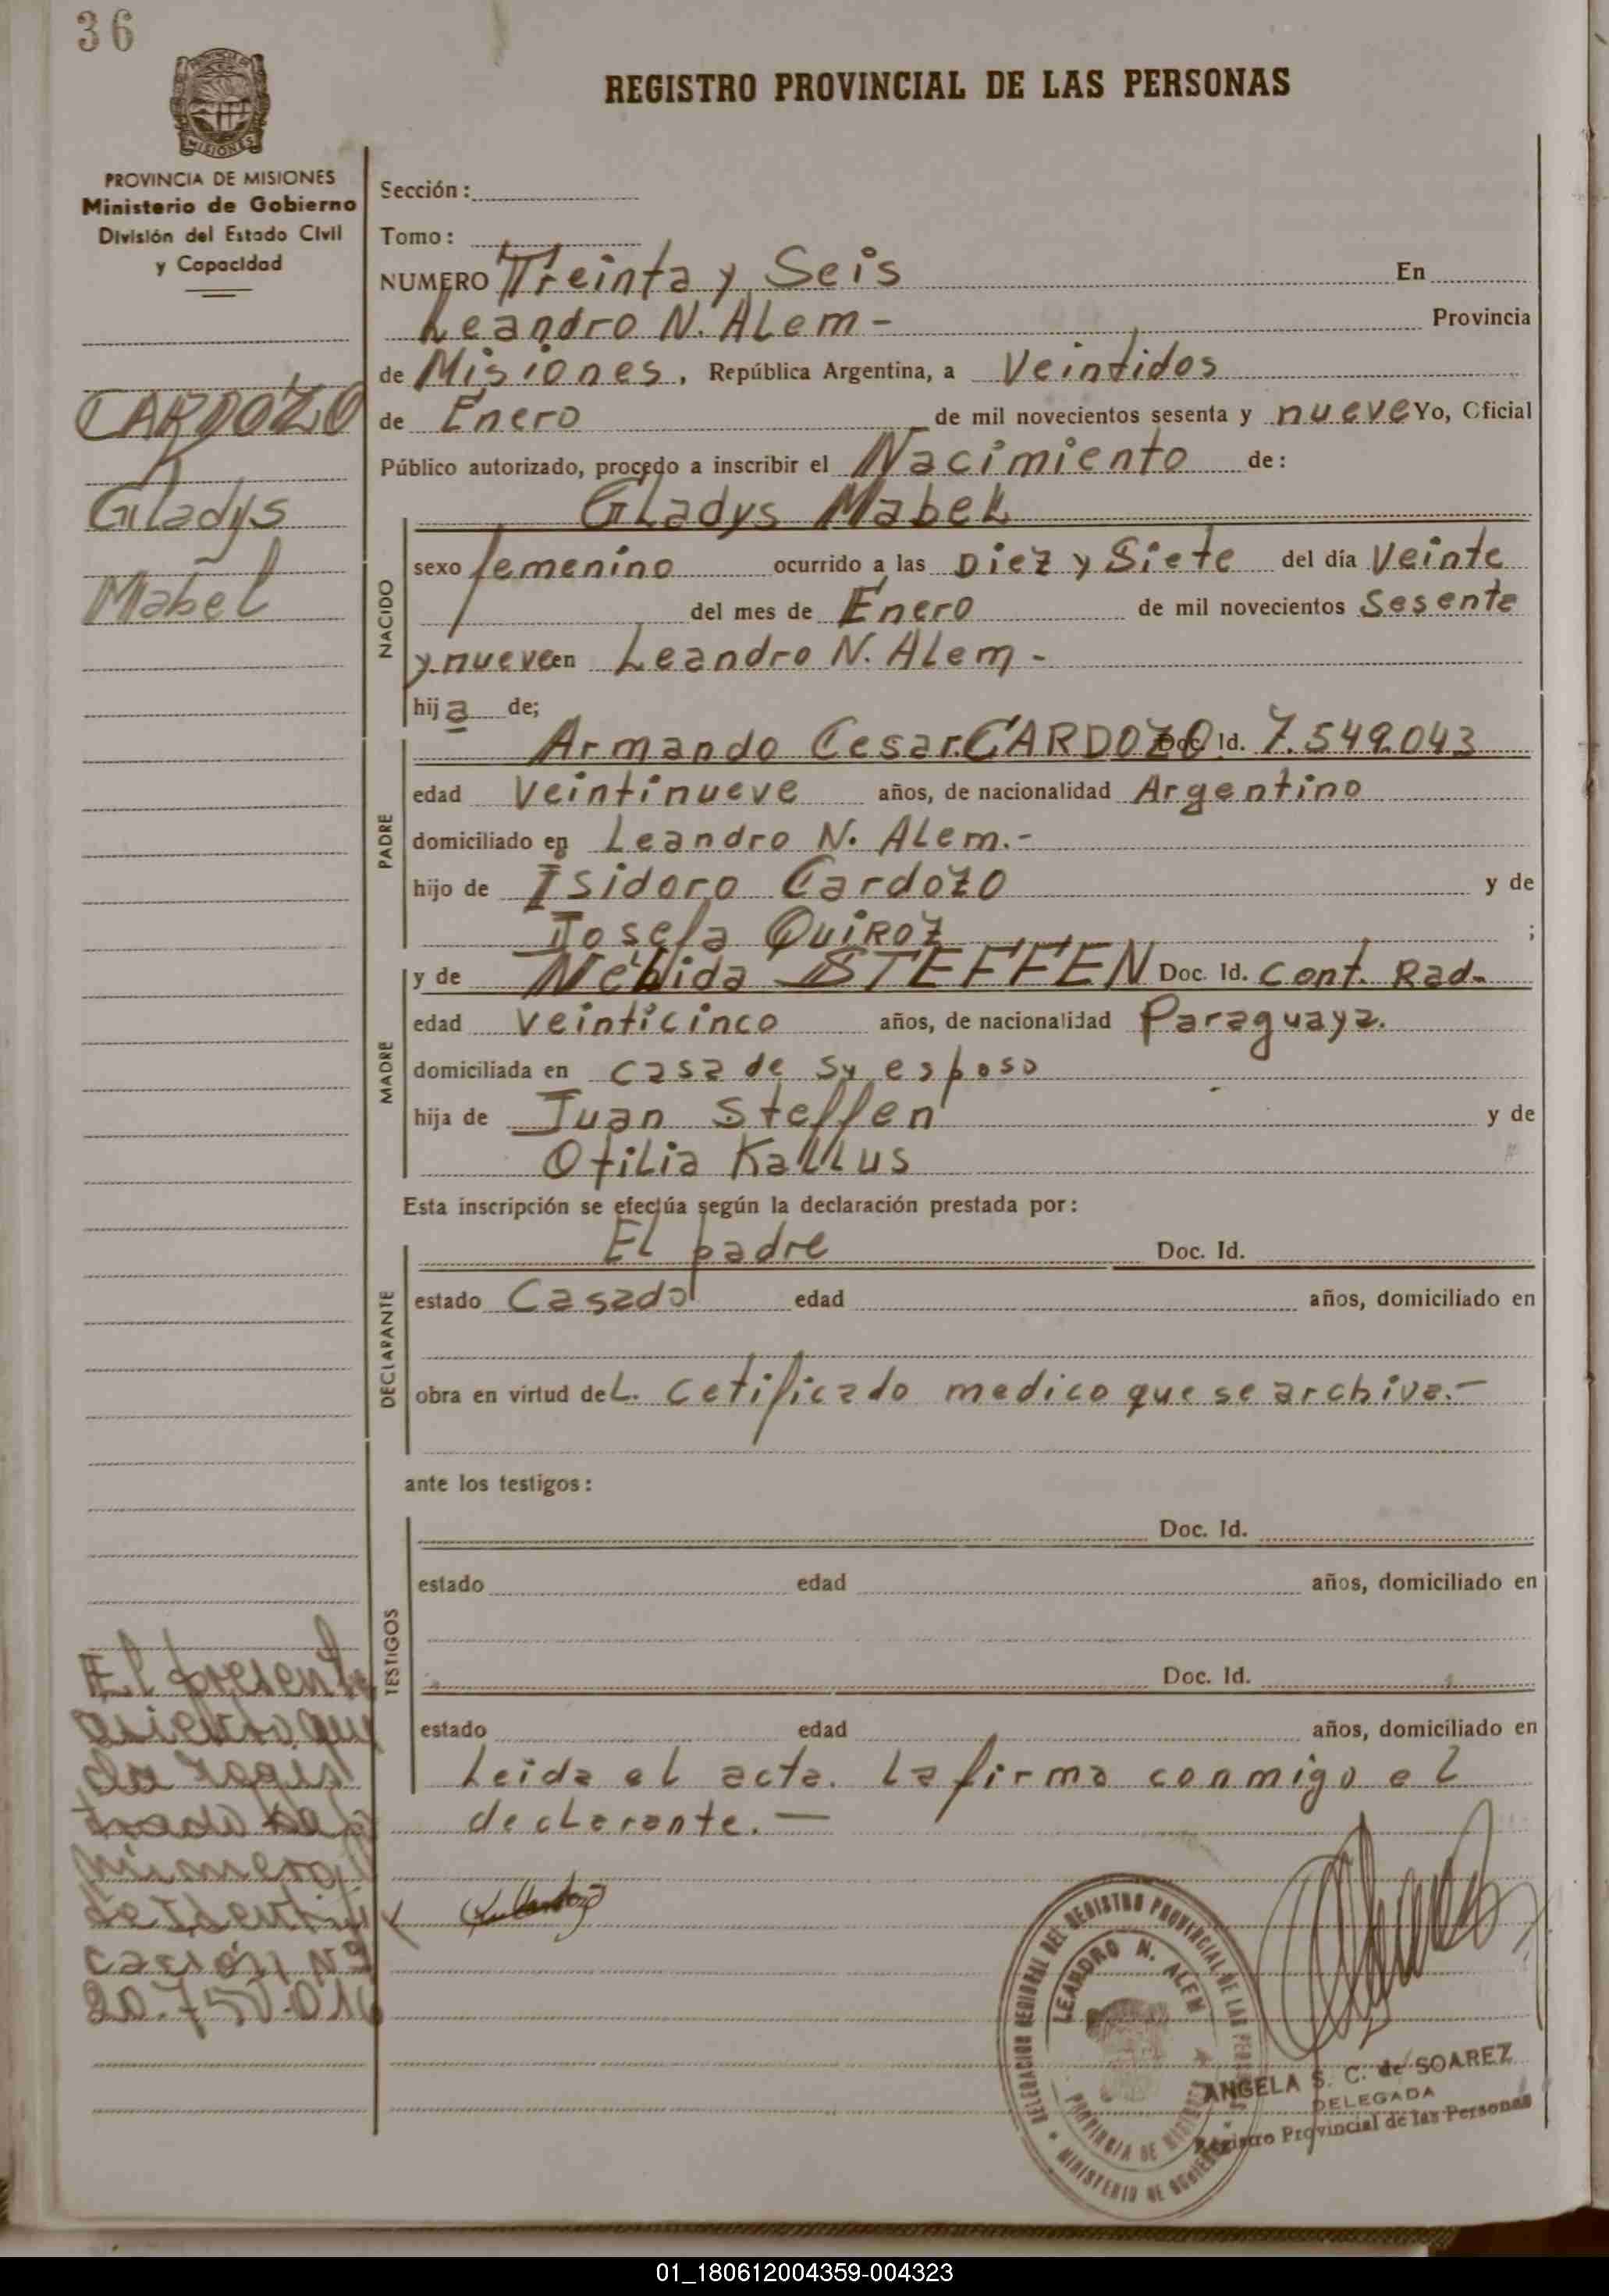 36
MISIONES
PROVINCIA DE MISIONES
Ministerio de Gobierno
División del Estado Civil
y Capacidad
CARDOZO
Gladys
Mabel
REGISTRO PROVINCIAL DE LAS PERSONAS
Sección:
Tomo:
NUMERO Treinta y Seis En
Leandro N. Alem - Provincia
de Misiones, República Argentina, a Veintidos
de Enero de mil novecientos sesenta y nueve Yo, Oficial
Público autorizado, procedo a inscribir el Nacimiento de:
Gladys Mabel
NACIDO
sexo femenino ocurrido a las Diez y Siete del día Veinte
del mes de Enero de mil novecientos Sesenta
y nueve en Leandro N. Alem -
hija de;
PADRE
Armando Cesar CARDOZO Doc. Id. 7.549.043
edad Veintinueve años, de nacionalidad Argentino
domiciliado en Leandro N. Alem.-
hijo de Isidoro Cardozo y de
Josefa Quiroz ;
MADRE
y de Nélida STEFFEN Doc. Id. Cont. Rad.
edad veinticinco años, de nacionalidad Paraguaya.
domiciliada en casa de su esposo
hija de Juan Steffen y de
Otilia Kallus
Esta inscripción se efectúa según la declaración prestada por:
DECLARANTE
El padre Doc. Id.
estado Casado edad años, domiciliado en
obra en virtud del. cetificado medico que se archiva.-
ante los testigos:
TESTIGOS
Doc. Id.
estado edad años, domiciliado en
Doc. Id.
estado edad años, domiciliado en
Leida el acta. La firma conmigo el
declarante. —
El presente
asiento que
da regis
trado ba
número
de identifi
cación Nº
20.750.016
DELEGACION REGIONAL DEL REGISTRO PROVINCIAL DE LAS PERSONAS
LEANDRO N. ALEM
PROVINCIA DE MISIONES
MINISTERIO DE GOBIERNO
ANGELA S. C. de SOAREZ
DELEGADA
Registro Provincial de las Personas
01_180612004359-004323